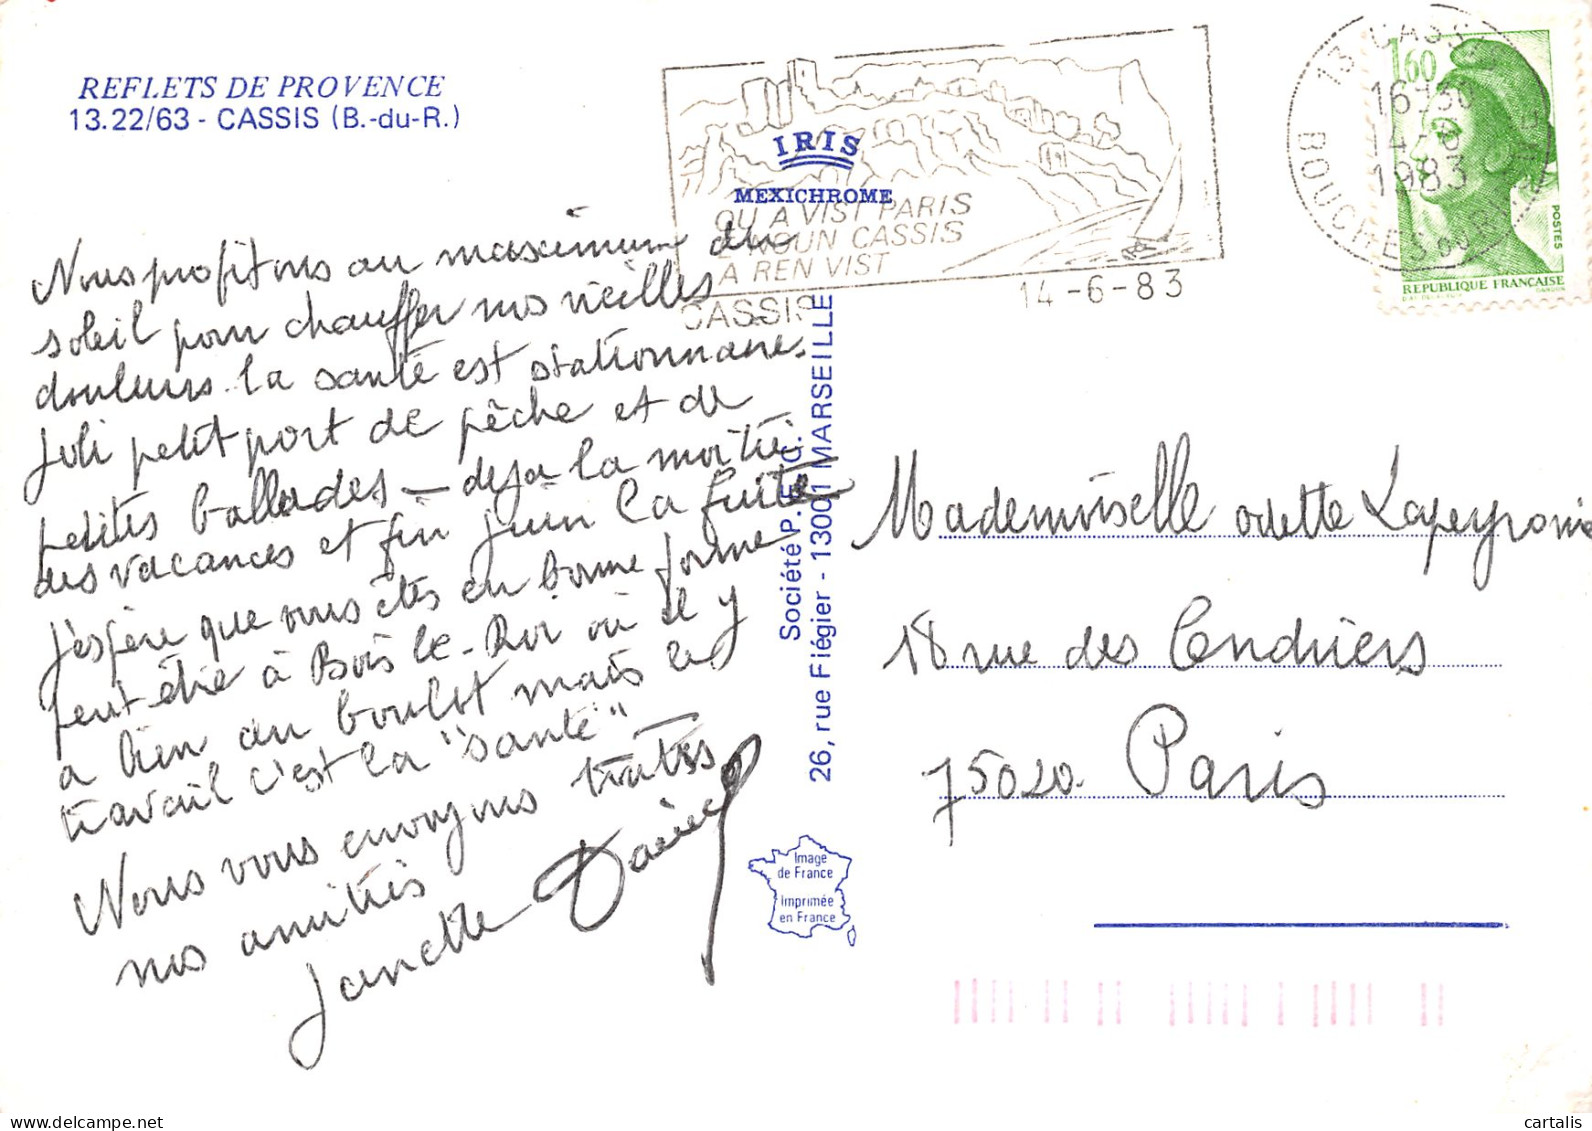 REFLETS DE PROVENCE
13.22/63 - CASSIS (B.-du-R.)
IRIS
MEXICHROME
QU A VIST PARIS
E NOUN CASSIS
A REN VIST
CASSIS
14-6-83
13 CASSIS
16H30
14-6
1983
BOUCHES DU RHONE
1,60
POSTES
REPUBLIQUE FRANÇAISE
Nous profitons au maximum du
soleil pour chauffer nos vieilles
douleurs. la santé est stationnaire.
Joli petit port de pêche et de
petites ballades — deja la moitié
des vacances et fin juin la fuite
J'espère que vous êtes en bonne forme
peut être à Bois le-Roi où il y
a bien du boulot mais le
travail c'est la "santé"
Nous vous envoyons toutes
nos amitiés
Janette Daniel
Société P.E.C.
26, rue Fiégier - 13001 MARSEILLE
Mademoiselle odette Lapeyronie
18 rue des Cendriers
75020. Paris
Image
de France
Imprimée
en France
cartalis